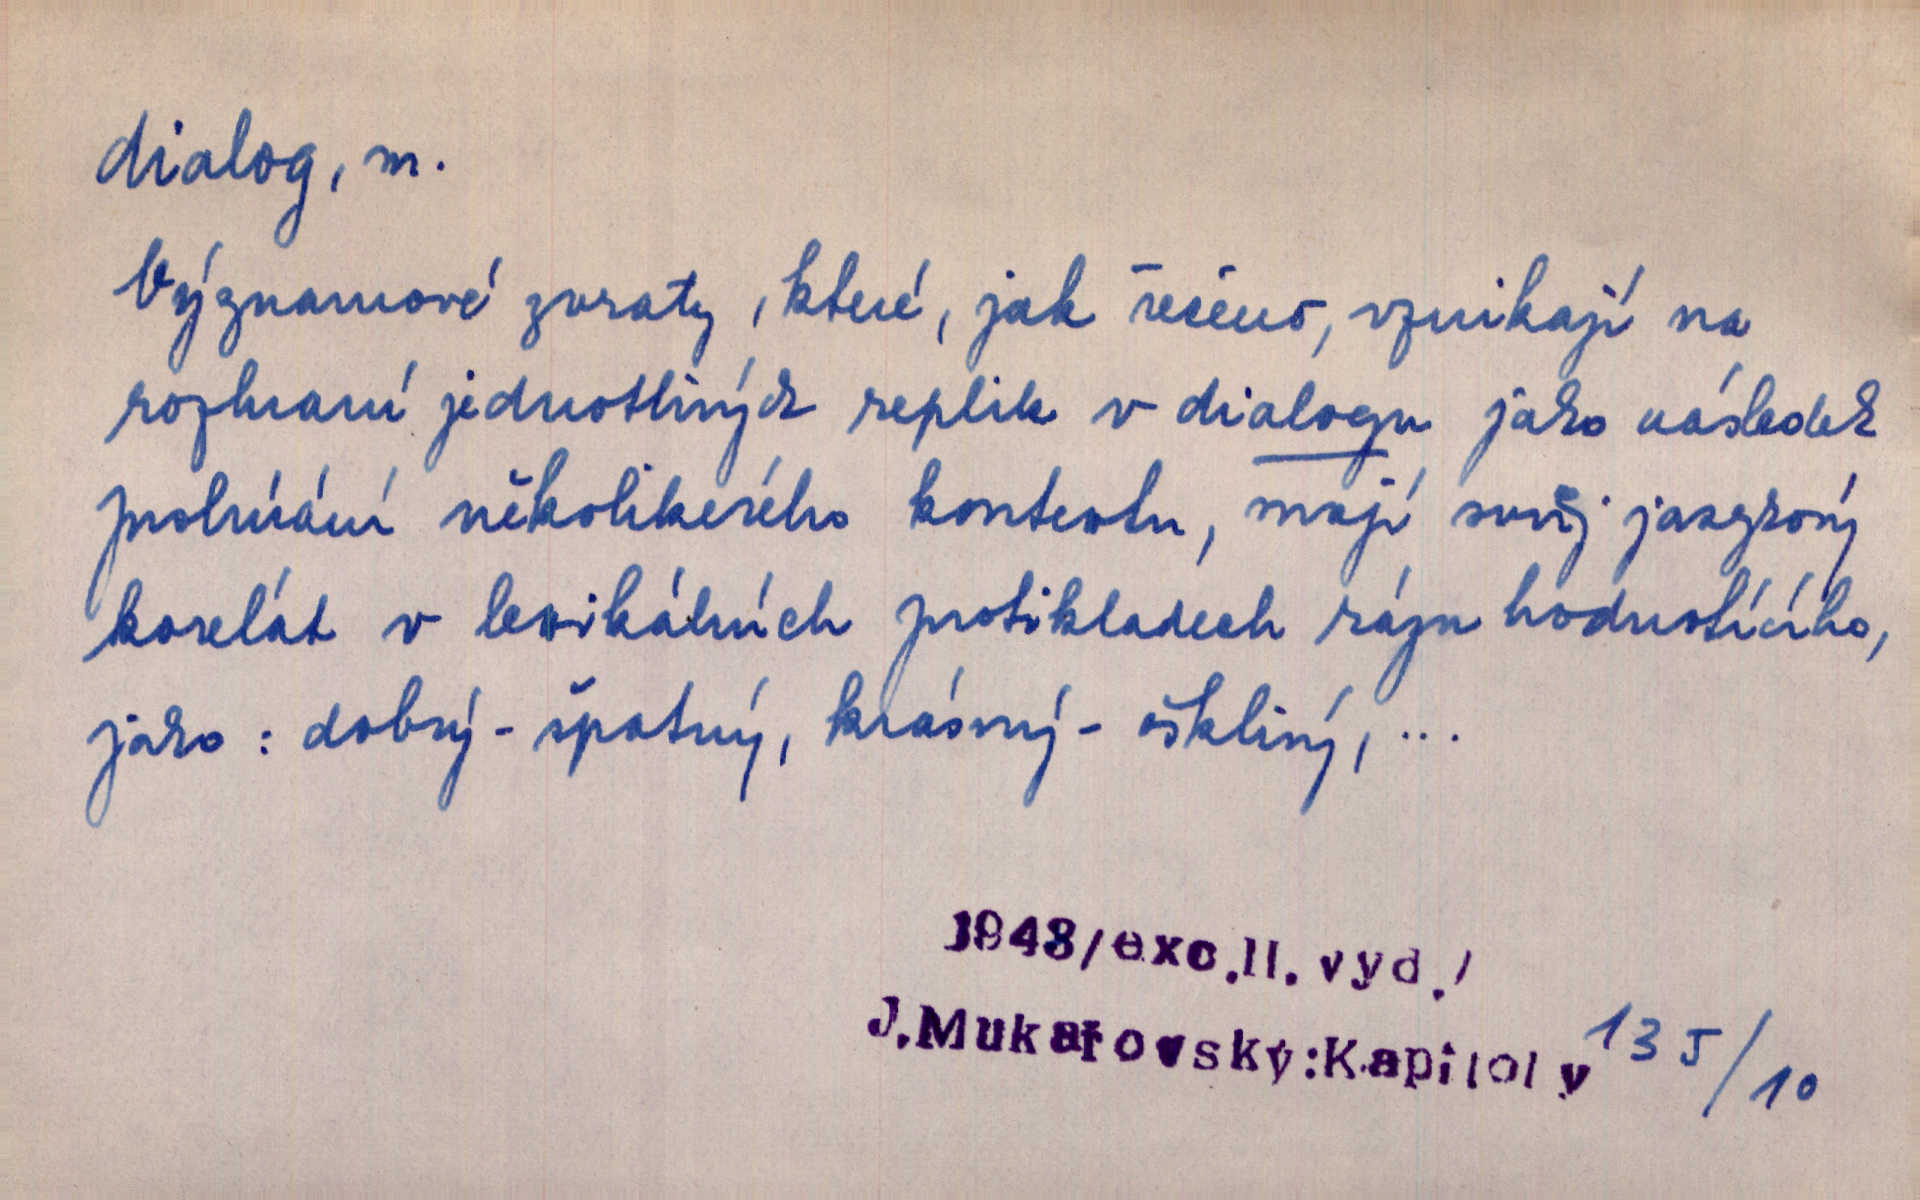 dialog, m.
Významové zvraty, které, jak řečeno, vznikají na
rozhraní jednotlivých replik v dialogu jako následek
prolínání několikerého kontextu, mají svůj jazykový
korelát v lexikálních protikladech rázu hodnotícího,
jako: dobrý - špatný, krásný - ošklivý, ...
1948/exc.II. vyd./
J.Mukařovský:Kapitoly 135/10